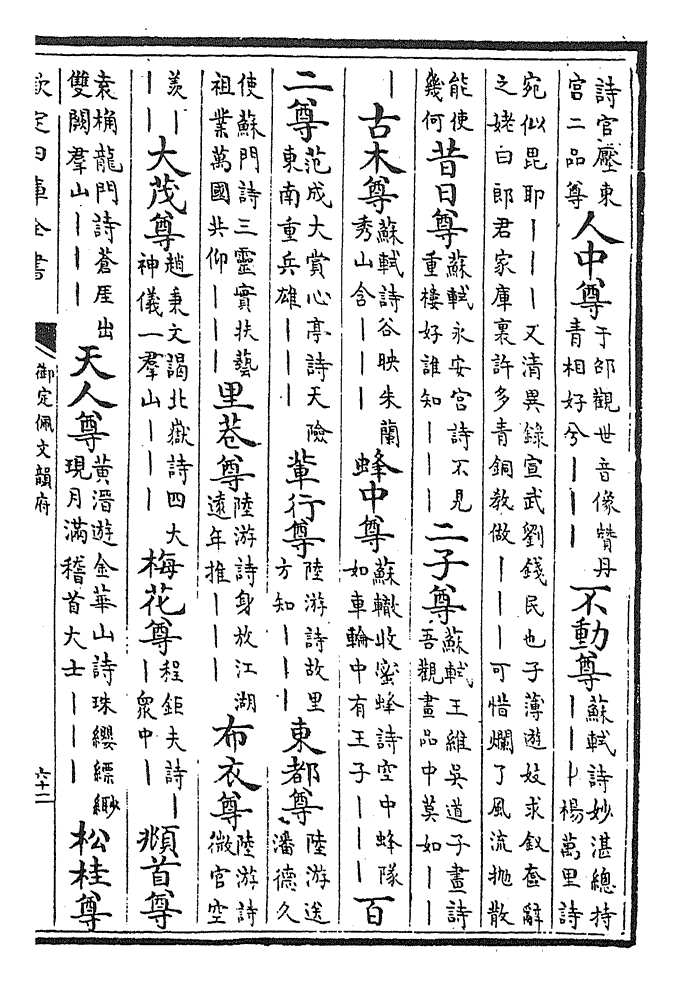 詩官壓東宫二品尊人中尊于邵觀世音像贊丹青相好兮｜｜｜不動尊蘇軾詩妙湛總持｜｜｜卜楊萬里詩
宛似毘耶｜｜｜又清異錄宣武劉錢民也子薄遊妓求釵奩辭之姥白郎君家庫裏許多青銅教做｜｜｜可惜爛了風流抛散
能使幾何昔日尊蘇軾永安宫詩不見重樓好誰知｜｜｜二子尊蘇軾王維吳道子畫詩吾觀畫品中莫如｜｜
｜古木尊蘇軾詩谷映朱蘭秀山含｜｜｜蜂中尊蘇轍收蜜蜂詩空中蜂隊如車輪中有王子｜｜｜百
二尊范成大賞心亭詩天險東南重兵雄｜｜｜輩行尊陸游詩故里方知｜｜｜東都尊陸游送潘德久
使蘇門詩三靈實扶藝祖業萬國共仰｜｜｜里巷尊陸游詩身放江湖遠年推｜｜｜布衣尊陸游詩微官空
羨｜｜｜大茂尊趙秉文謁北嶽詩四大神儀一羣山｜｜｜梅花尊程鉅夫詩｜｜衆中｜頫首尊
袁桷龍門詩蒼厓出雙闕羣山｜｜｜天人尊黃溍遊金華山詩珠纓縹緲現月滿稽首大士｜｜｜松桂尊
欽定四庫全書
御定佩文韻府
六十二